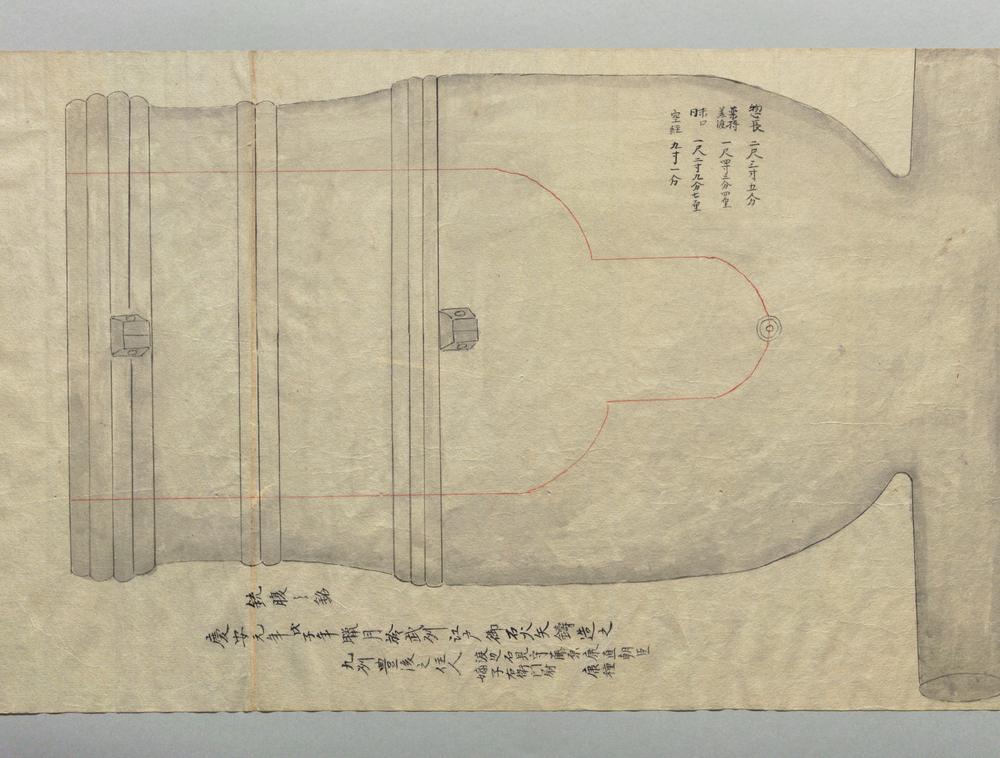 惣長 二尺三寸五分
薬持 一尺四寸三分四厘
蓋渡
末口 一尺二寸九分七厘
同
空経 九寸一分
銃腹ニ銘
慶安元年戊子年臘月於武州江戸御石火矢鑄造之
九州豊後之住人
渡辺石見守藤原康直朝臣
嫡子右衛門尉 康種